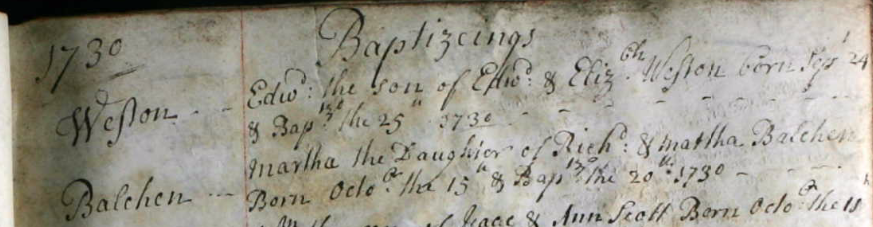 1730 Baptizeings
Edwd: the son of Edwd: & Elizth Weston born Sepr 24
Weston
& Bapzd the 25th 1730
Martha the Daughter of Richd: & Martha Balchen
Balchen Born Octor the 15th & Bapzd the 20th 1730
of Isaac & Ann Scott Born Octor the 11